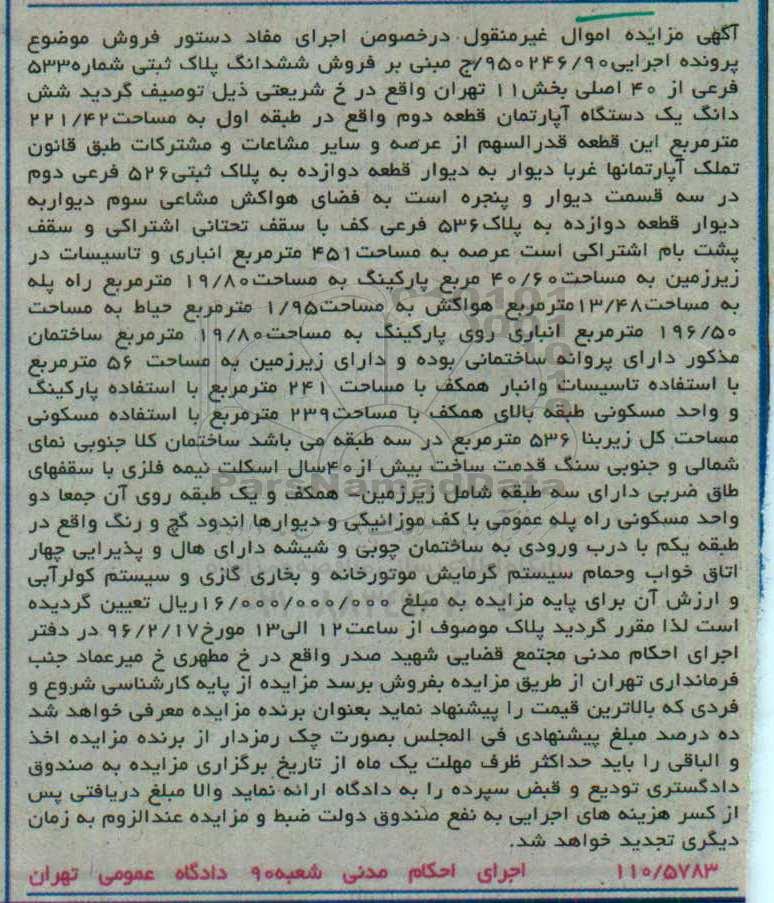 آگهی مزایده اموال غیرمنقول درخصوص اجرای مفاد دستور فروش موضوع
پرونده اجرایی۹۵۰۲۴۶/۹۰/ج مبنی بر فروش ششدانگ پلاک ثبتی شماره۵۳۳
فرعی از ۴۰ اصلی بخش۱۱ تهران واقع در خ شریعتی ذیل توصیف گردید شش
دانگ یک دستگاه آپارتمان قطعه دوم واقع در طبقه اول به مساحت۲۲۱/۴۲
مترمربع این قطعه قدرالسهم از عرصه و سایر مشاعات و مشترکات طبق قانون
تملک آپارتمانها غربا دیوار به دیوار قطعه دوازده به پلاک ثبتی۵۲۶ فرعی دوم
در سه قسمت دیوار و پنجره است به فضای هواکش مشاعی سوم دیواربه
دیوار قطعه دوازده به پلاک۵۳۶ فرعی کف با سقف تحتانی اشتراکی و سقف
پشت بام اشتراکی است عرصه به مساحت۴۵۱ مترمربع انباری و تاسیسات در
زیرزمین به مساحت۴۰/۶۰ مربع پارکینگ به مساحت۱۹/۸۰ مترمربع راه پله
به مساحت۱۳/۴۸مترمربع هواکش به مساحت۱/۹۵ مترمربع حیاط به مساحت
۱۹۶/۵۰ مترمربع انباری روی پارکینگ به مساحت۱۹/۸۰ مترمربع ساختمان
مذکور دارای پروانه ساختمانی بوده و دارای زیرزمین به مساحت ۵۶ مترمربع
با استفاده تاسیسات وانبار همکف با مساحت ۲۴۱ مترمربع با استفاده پارکینگ
و واحد مسکونی طبقه بالای همکف با مساحت۲۳۹ مترمربع با استفاده مسکونی
مساحت کل زیربنا ۵۳۶ مترمربع در سه طبقه می باشد ساختمان کلا جنوبی نمای
شمالی و جنوبی سنگ قدمت ساخت بیش از۴۰سال اسکلت نیمه فلزی با سقفهای
طاق ضربی دارای سه طبقه شامل زیرزمین- همکف و یک طبقه روی آن جمعا دو
واحد مسکونی راه پله عمومی با کف موزائیکی و دیوارها اندود گچ و رنگ واقع در
طبقه یکم با درب ورودی به ساختمان چوبی و شیشه دارای هال و پذیرایی چهار
اتاق خواب وحمام سیستم گرمایش موتورخانه و بخاری گازی و سیستم کولرآبی
و ارزش آن برای پایه مزایده به مبلغ ۱۶/۰۰۰/۰۰۰/۰۰۰ریال تعیین گردیده
است لذا مقرر گردید پلاک موصوف از ساعت۱۲ الی۱۳ مورخ۹۶/۲/۱۷ در دفتر
اجرای احکام مدنی مجتمع قضایی شهید صدر واقع در خ مطهری خ میرعماد جنب
فرمانداری تهران از طریق مزایده بفروش برسد مزایده از پایه کارشناسی شروع و
فردی که بالاترین قیمت را پیشنهاد نماید بعنوان برنده مزایده معرفی خواهد شد
ده درصد مبلغ پیشنهادی فی المجلس بصورت چک رمزدار از برنده مزایده اخذ
و الباقی را باید حداکثر ظرف مهلت یک ماه از تاریخ برگزاری مزایده به صندوق
دادگستری تودیع و قبض سپرده را به دادگاه ارائه نماید والا مبلغ دریافتی پس
از کسر هزینه های اجرایی به نفع صندوق دولت ضبط و مزایده عندالزوم به زمان
دیگری تجدید خواهد شد.
۱۱۰/۵۷۸۳ اجرای احکام مدنی شعبه۹۰ دادگاه عمومی تهران
ParsNamadData